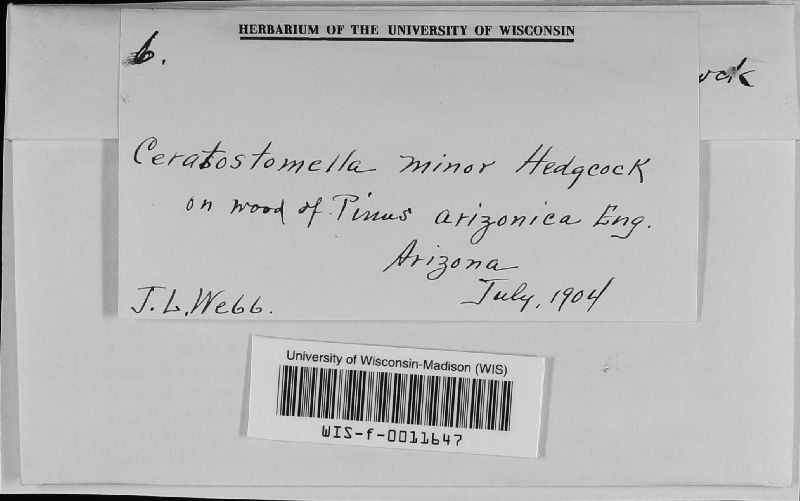 HERBARIUM OF THE UNIVERSITY OF WISCONSIN
b.
Ceratostomella minor Hedgcock
on wood of Pinus arizonica Eng.
Arizona
July, 1904
J. L. Webb.
University of Wisconsin-Madison (WIS)
WIS-f-0011647